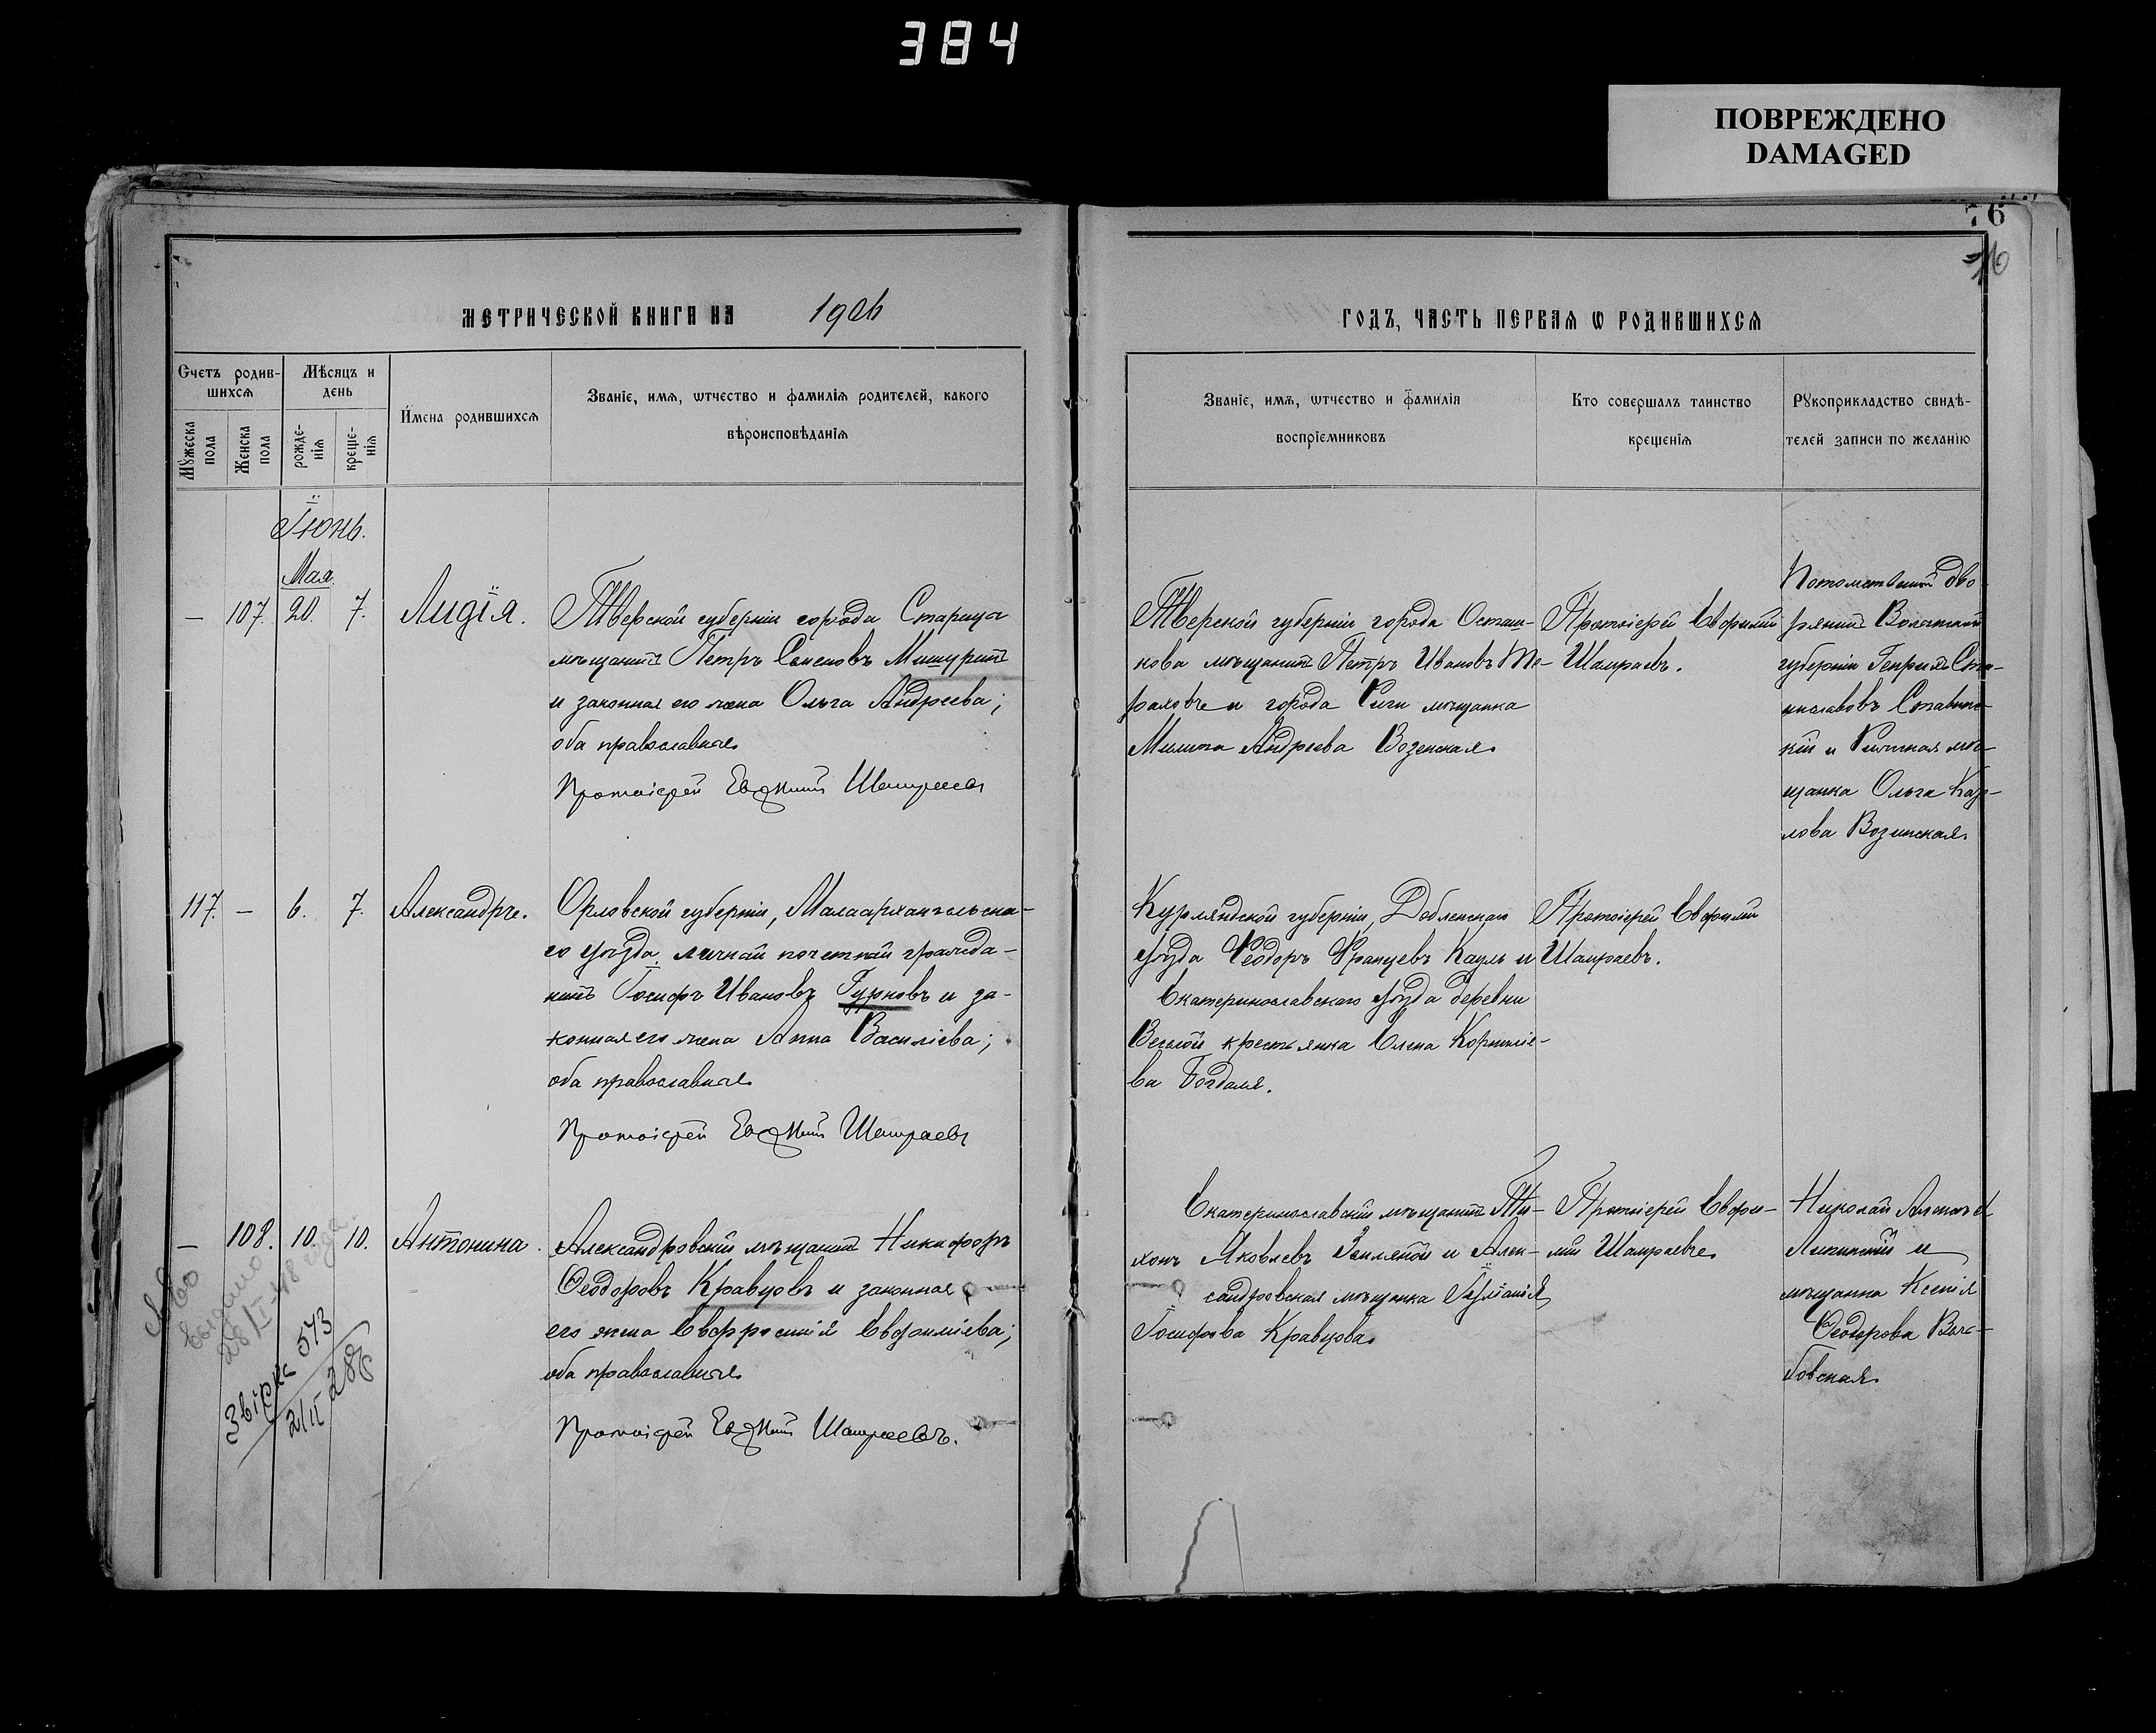 384
ПОВРЕЖДЕНО
DAMAGED
76
МЕТРИЧЕСКОЙ КНИГИ НА 1906
ГОДЪ, ЧАСТЬ ПЕРВАЯ Ѡ РОДИВШИХСЯ
Счетъ родив-
шихся
Мѣсяцъ и
день
Имена родившихся
Званіе, имя, ѡтчество и фамилія родителей, какого
вѣроисповѣданія
Мужеска
пола
Женска
пола
рожде-
нія
креще-
нія
Званіе, имя, ѡтчество и фамилія
воспріемниковъ
Кто совершалъ таинство
крещенія
Рукоприкладство свидѣ-
телей записи по желанію
Іюнь.
Мая
— 107. 20. 7. Лидія.
Тверской губерніи города Старица
мѣщанинъ Петръ Семеновъ Мишуринъ
и законная его жена Ольга Андреева;
оба православные.
Протоіерей Евфимій Шамраевъ
Тверской губерніи города Осташ-
кова мѣщанинъ Петръ Ивановъ Те-
и города Риги мѣщанка
Андреева Возенская.
Протоіерей Евфимій
Шамраевъ.
Потомственный дво-
рянинъ
губерніи Генрихъ Ста-
ниславовъ
кій и Рижская мѣ-
щанка Ольга Кар-
лова Возинская.
117. — 6. 7. Александръ.
Орловской губерніи, Малаархангельска-
го уѣзда, личный почетный гражда-
нинъ Іосифъ Ивановъ Гурновъ и за-
конная его жена Анна Василіева;
оба православные.
Протоіерей Евфимій Шамраевъ
Курляндской губерніи, Добленскаго
уѣзда Феодоръ Францевъ Кауль и
Екатеринославскаго уѣзда деревни
Веселой крестьянка Елена Корниліе-
ва
Протоіерей Евфимій
Шамраевъ.
— 108. 10. 10. Антонина.
Александровскій мѣщанинъ Никифоръ
Ѳеодоровъ Кравцовъ и законная
его жена Евфросинія Евфиміева;
оба православные.
Протоіерей Евфимій Шамраевъ.
Екатеринославскій мѣщанинъ Ти-
хонъ Яковлевъ и Алек-
сандровская мѣщанка
Іосифова Кравцова.
Протоіерей Евфи-
мій Шамраевъ.
Николай
и
мѣщанка Ксенія
Ѳеодорова
28/I-48 года
Звірка 573
2/II